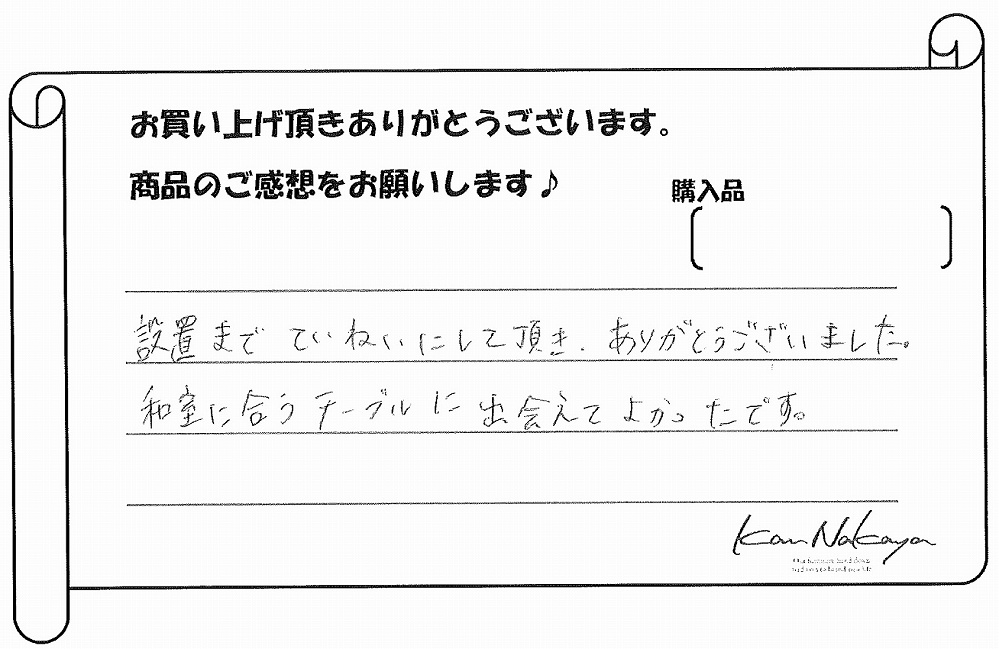 お買い上げ頂きありがとうございます。
商品のご感想をお願いします♪
購入品
設置まで ていねいにして頂き、ありがとうございました。
和室に合うテーブルに出会えてよかったです。
Kan Nakaya